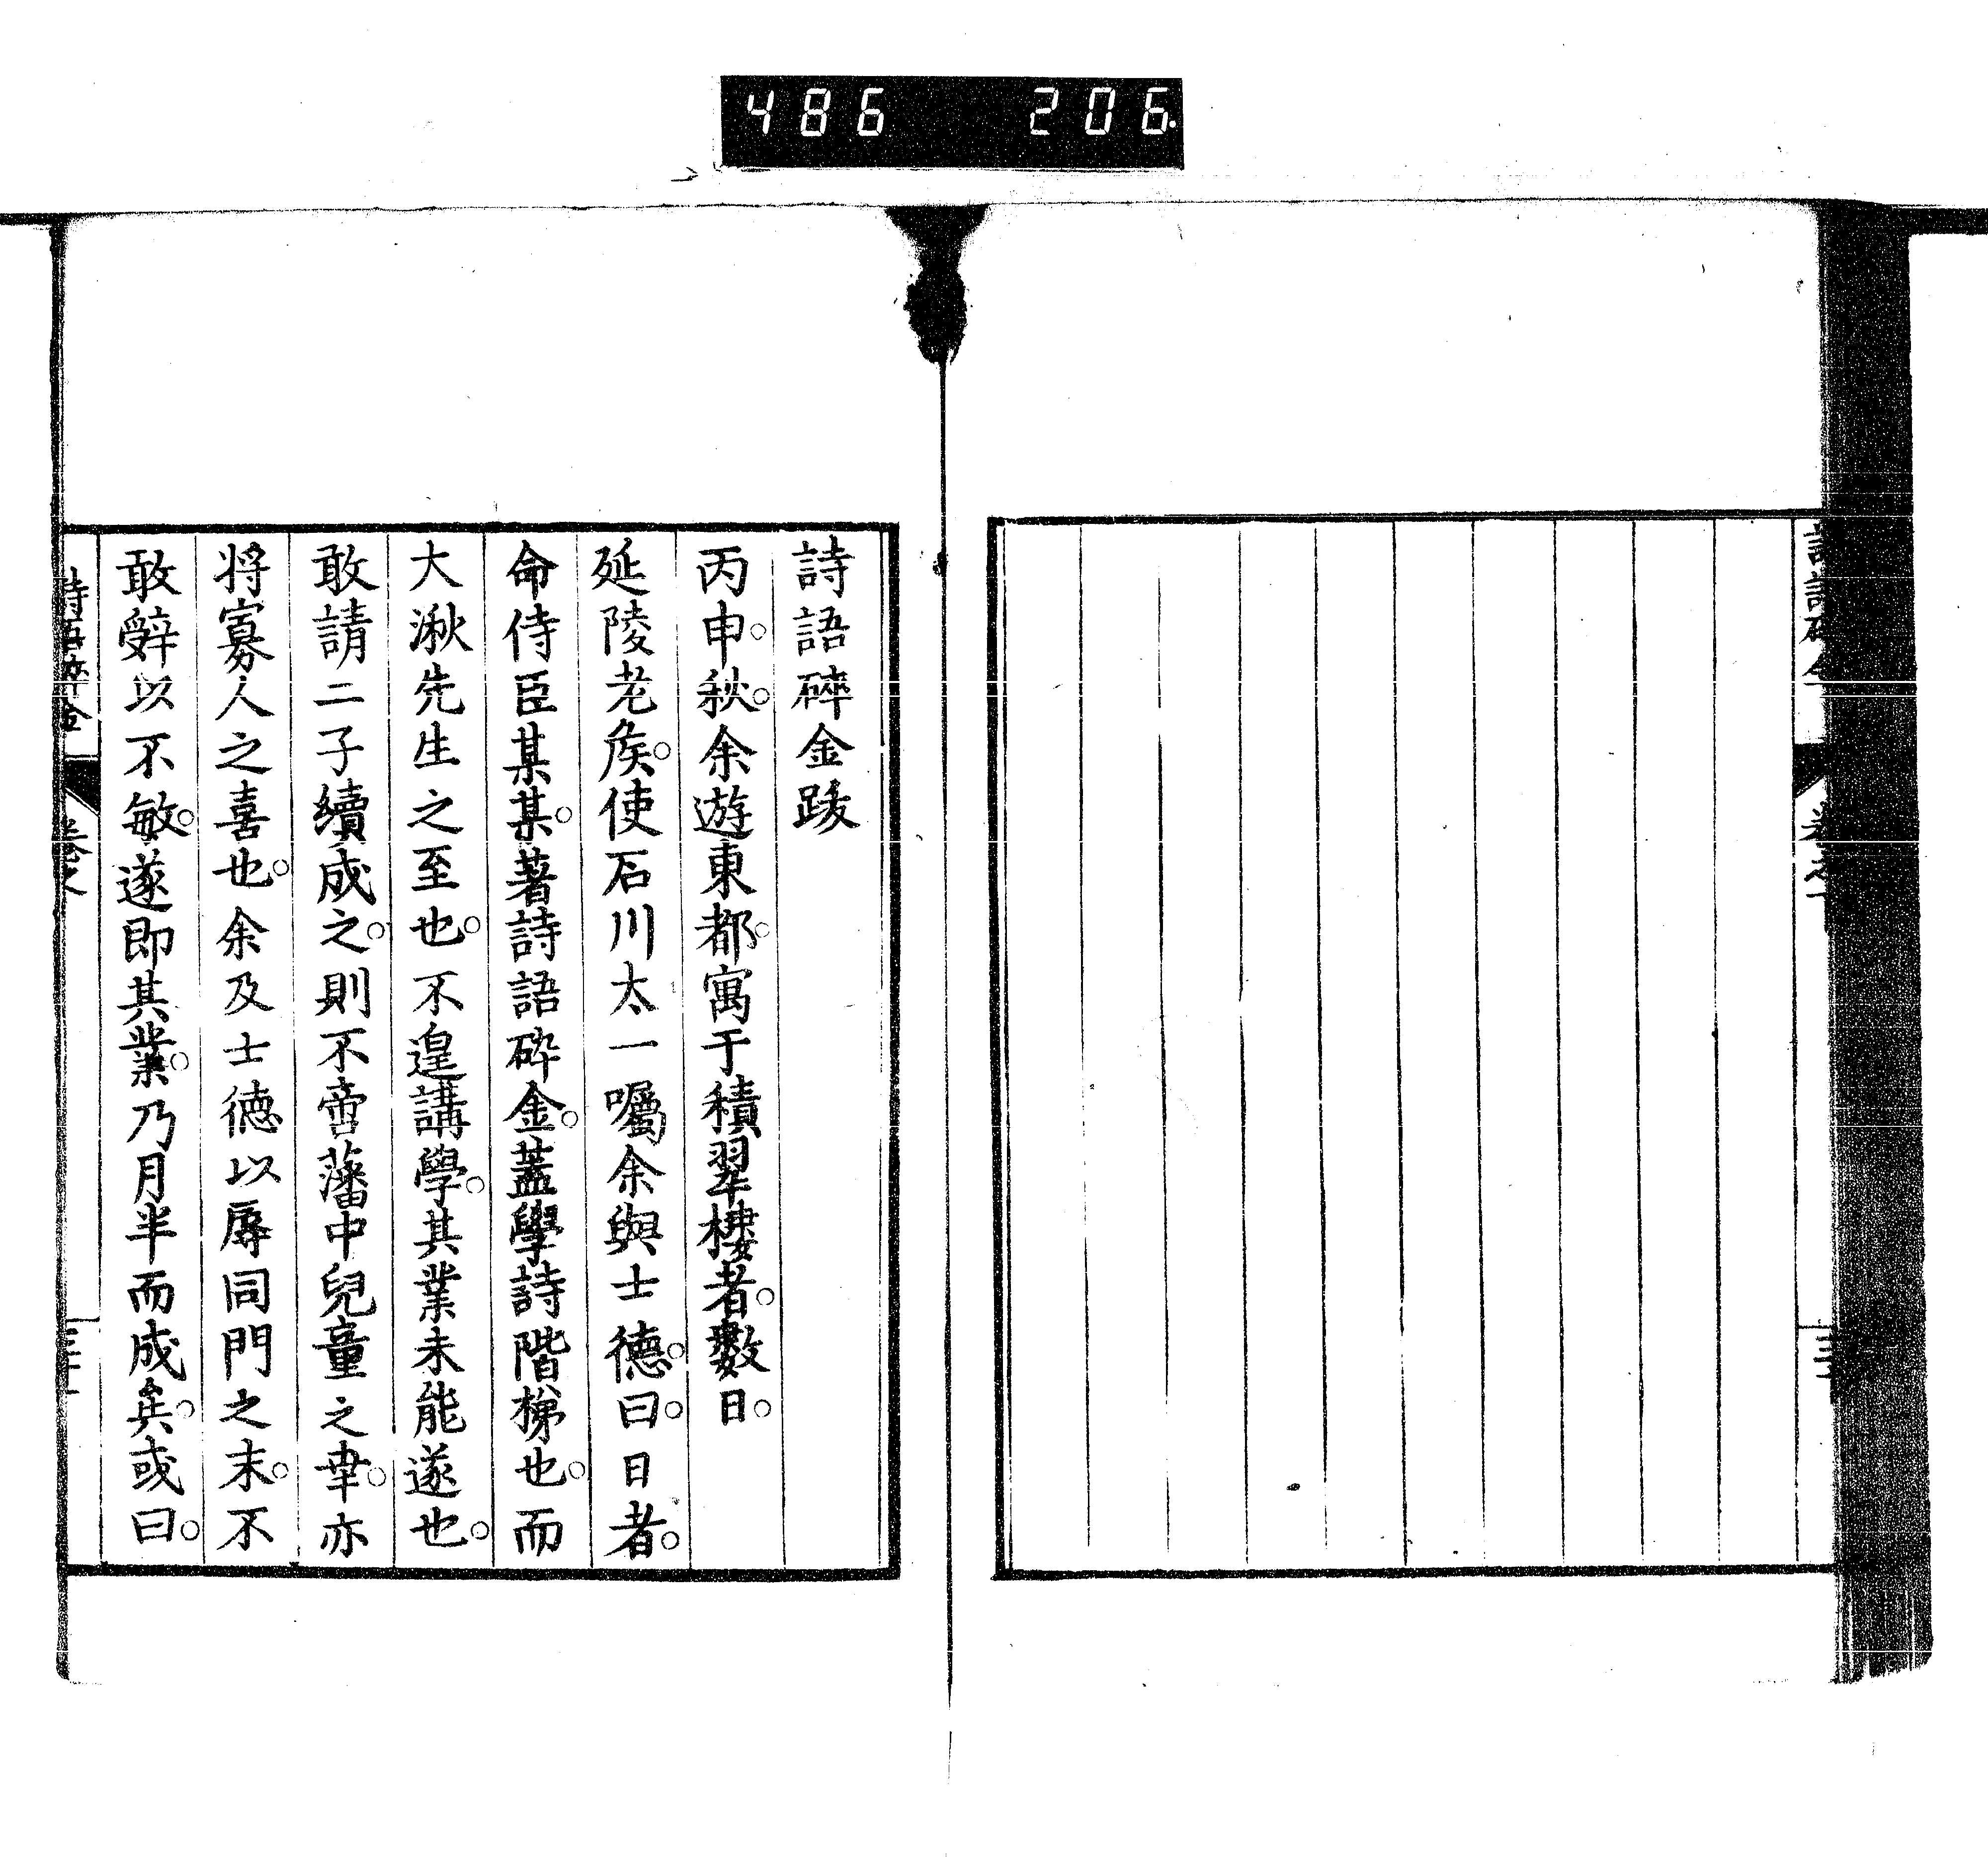 486 206
詩語碎金跋
丙申。秋。余遊東都。寓于積翠樓者。數日。
延陵老矦。使石川太一囑余與士德。曰。日者。
命侍臣某某。著詩語碎金。蓋學詩階梯也。而
大湫先生之至也。不遑講學。其業未能遂也。
敢請二子續成之。則不啻藩中兒童之幸。亦
將寡人之喜也。余及士德以辱同門之末。不
敢辭以不敏。遂即其業。乃月半而成矣。或曰。